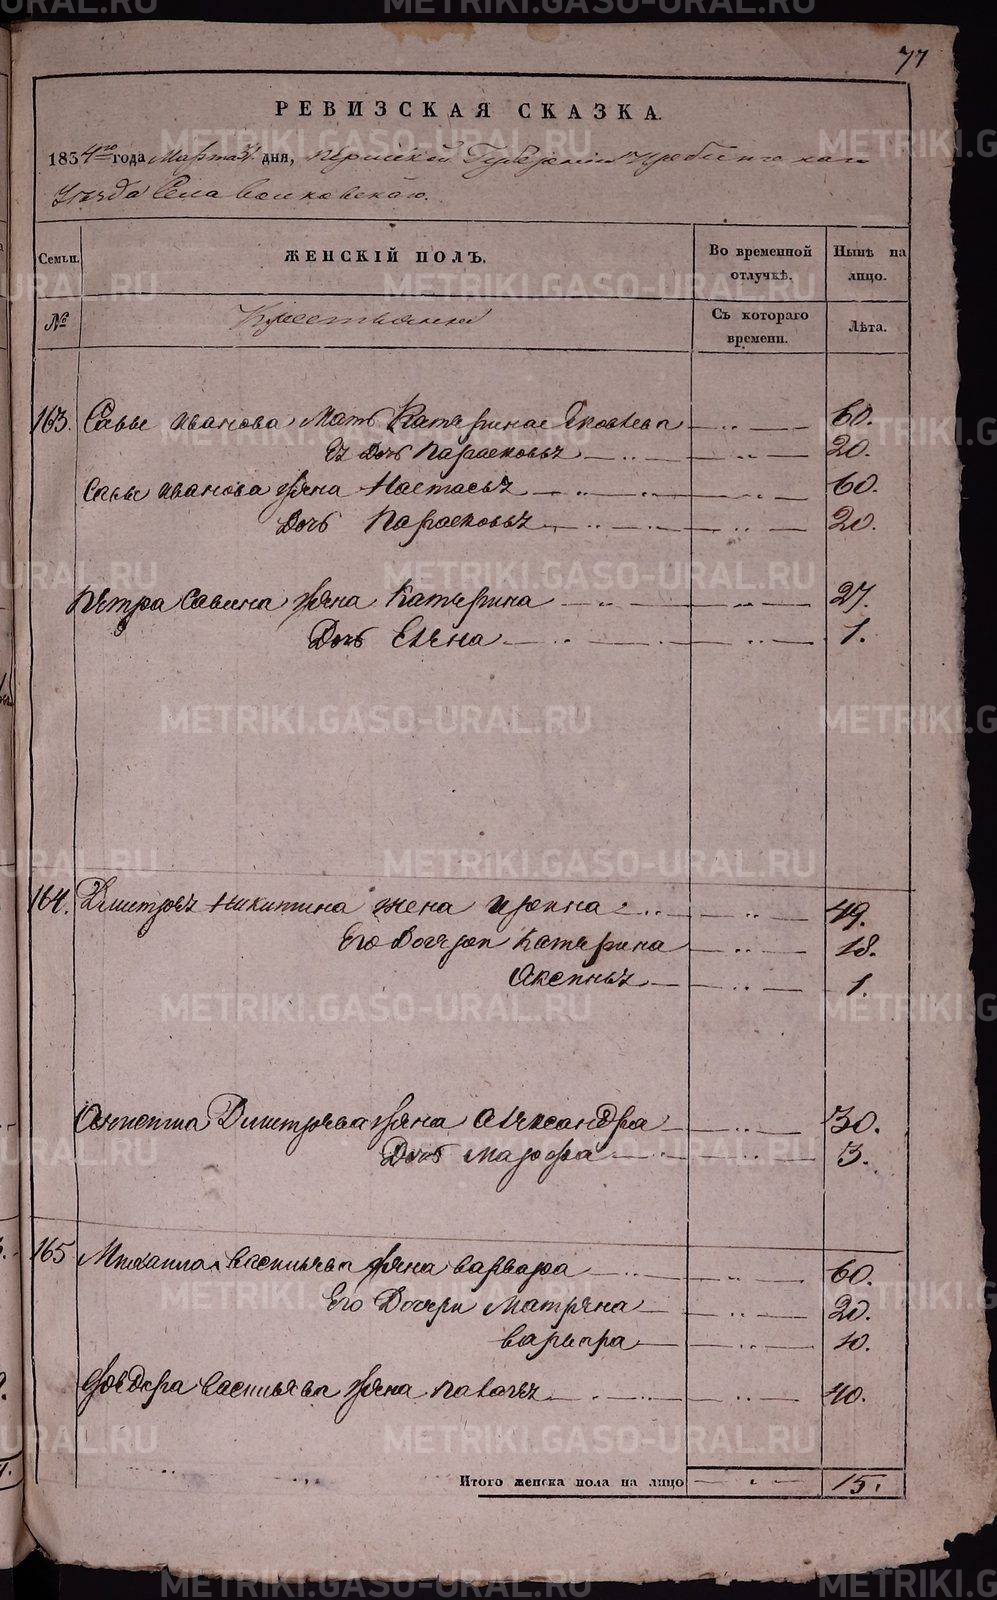 77
РЕВИЗСКАЯ СКАЗКА.
1834го года Марта 31 дня, Пермской Губернии Ирбитскаго
Уезда Села Волковскаго.
Семьи. ЖЕНСКІЙ ПОЛЪ. Во временной отлучкѣ. Нынѣ на лицо.
№ Крестьянки Съ котораго времени. Лѣта.
163. Савы Иванова Мать Катерина Яковлева 60.
Ея дочь Парасковья 20.
Савы Иванова жена Настасья 60.
Дочь Парасковья 20.
Петра Савина жена Катерина 27.
Дочь Елена 1.
164. Дмитрея Никитина жена Ирина 49.
Его Дочери Катерина 18.
Аксинья 1.
Дмитрева жена Александра 30.
Дочь Марфа 3.
165 Михаила Васильева жена Варвара 60.
Его Дочери Матрена 20.
Варвара 10.
Федора Васильева жена Палагея 40.
Итого женска пола на лицо 15.
METRIKI.GASO-URAL.RU